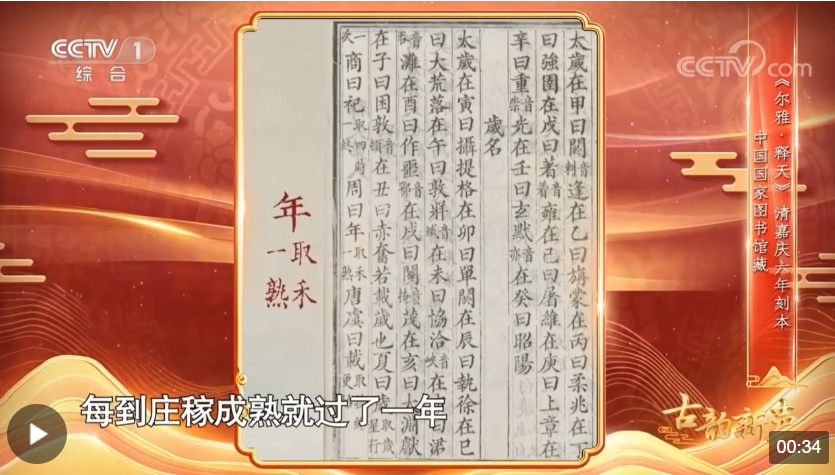 CCTV 1
综合
CCTV.com
《尔雅·释天》 清嘉庆六年刻本
中国国家图书馆藏
太歲在甲曰閼逢在乙曰旃蒙在丙曰柔兆在丁
曰強圉在戊曰著雍在己曰屠維在庚曰上章在
辛曰重光在壬曰玄黓在癸曰昭陽
歲名
太歲在寅曰攝提格在卯曰單閼在辰曰執徐在巳
曰大荒落在午曰敦牂在未曰協洽在申曰涒
灘在酉曰作噩在戌曰閹茂在亥曰大淵獻
在子曰困敦在丑曰赤奮若載歲也夏曰歲
商曰祀取四時一終周曰年取禾一熟唐虞曰載
年
取禾
一熟
每到庄稼成熟就过了一年
古韵新声
00:34